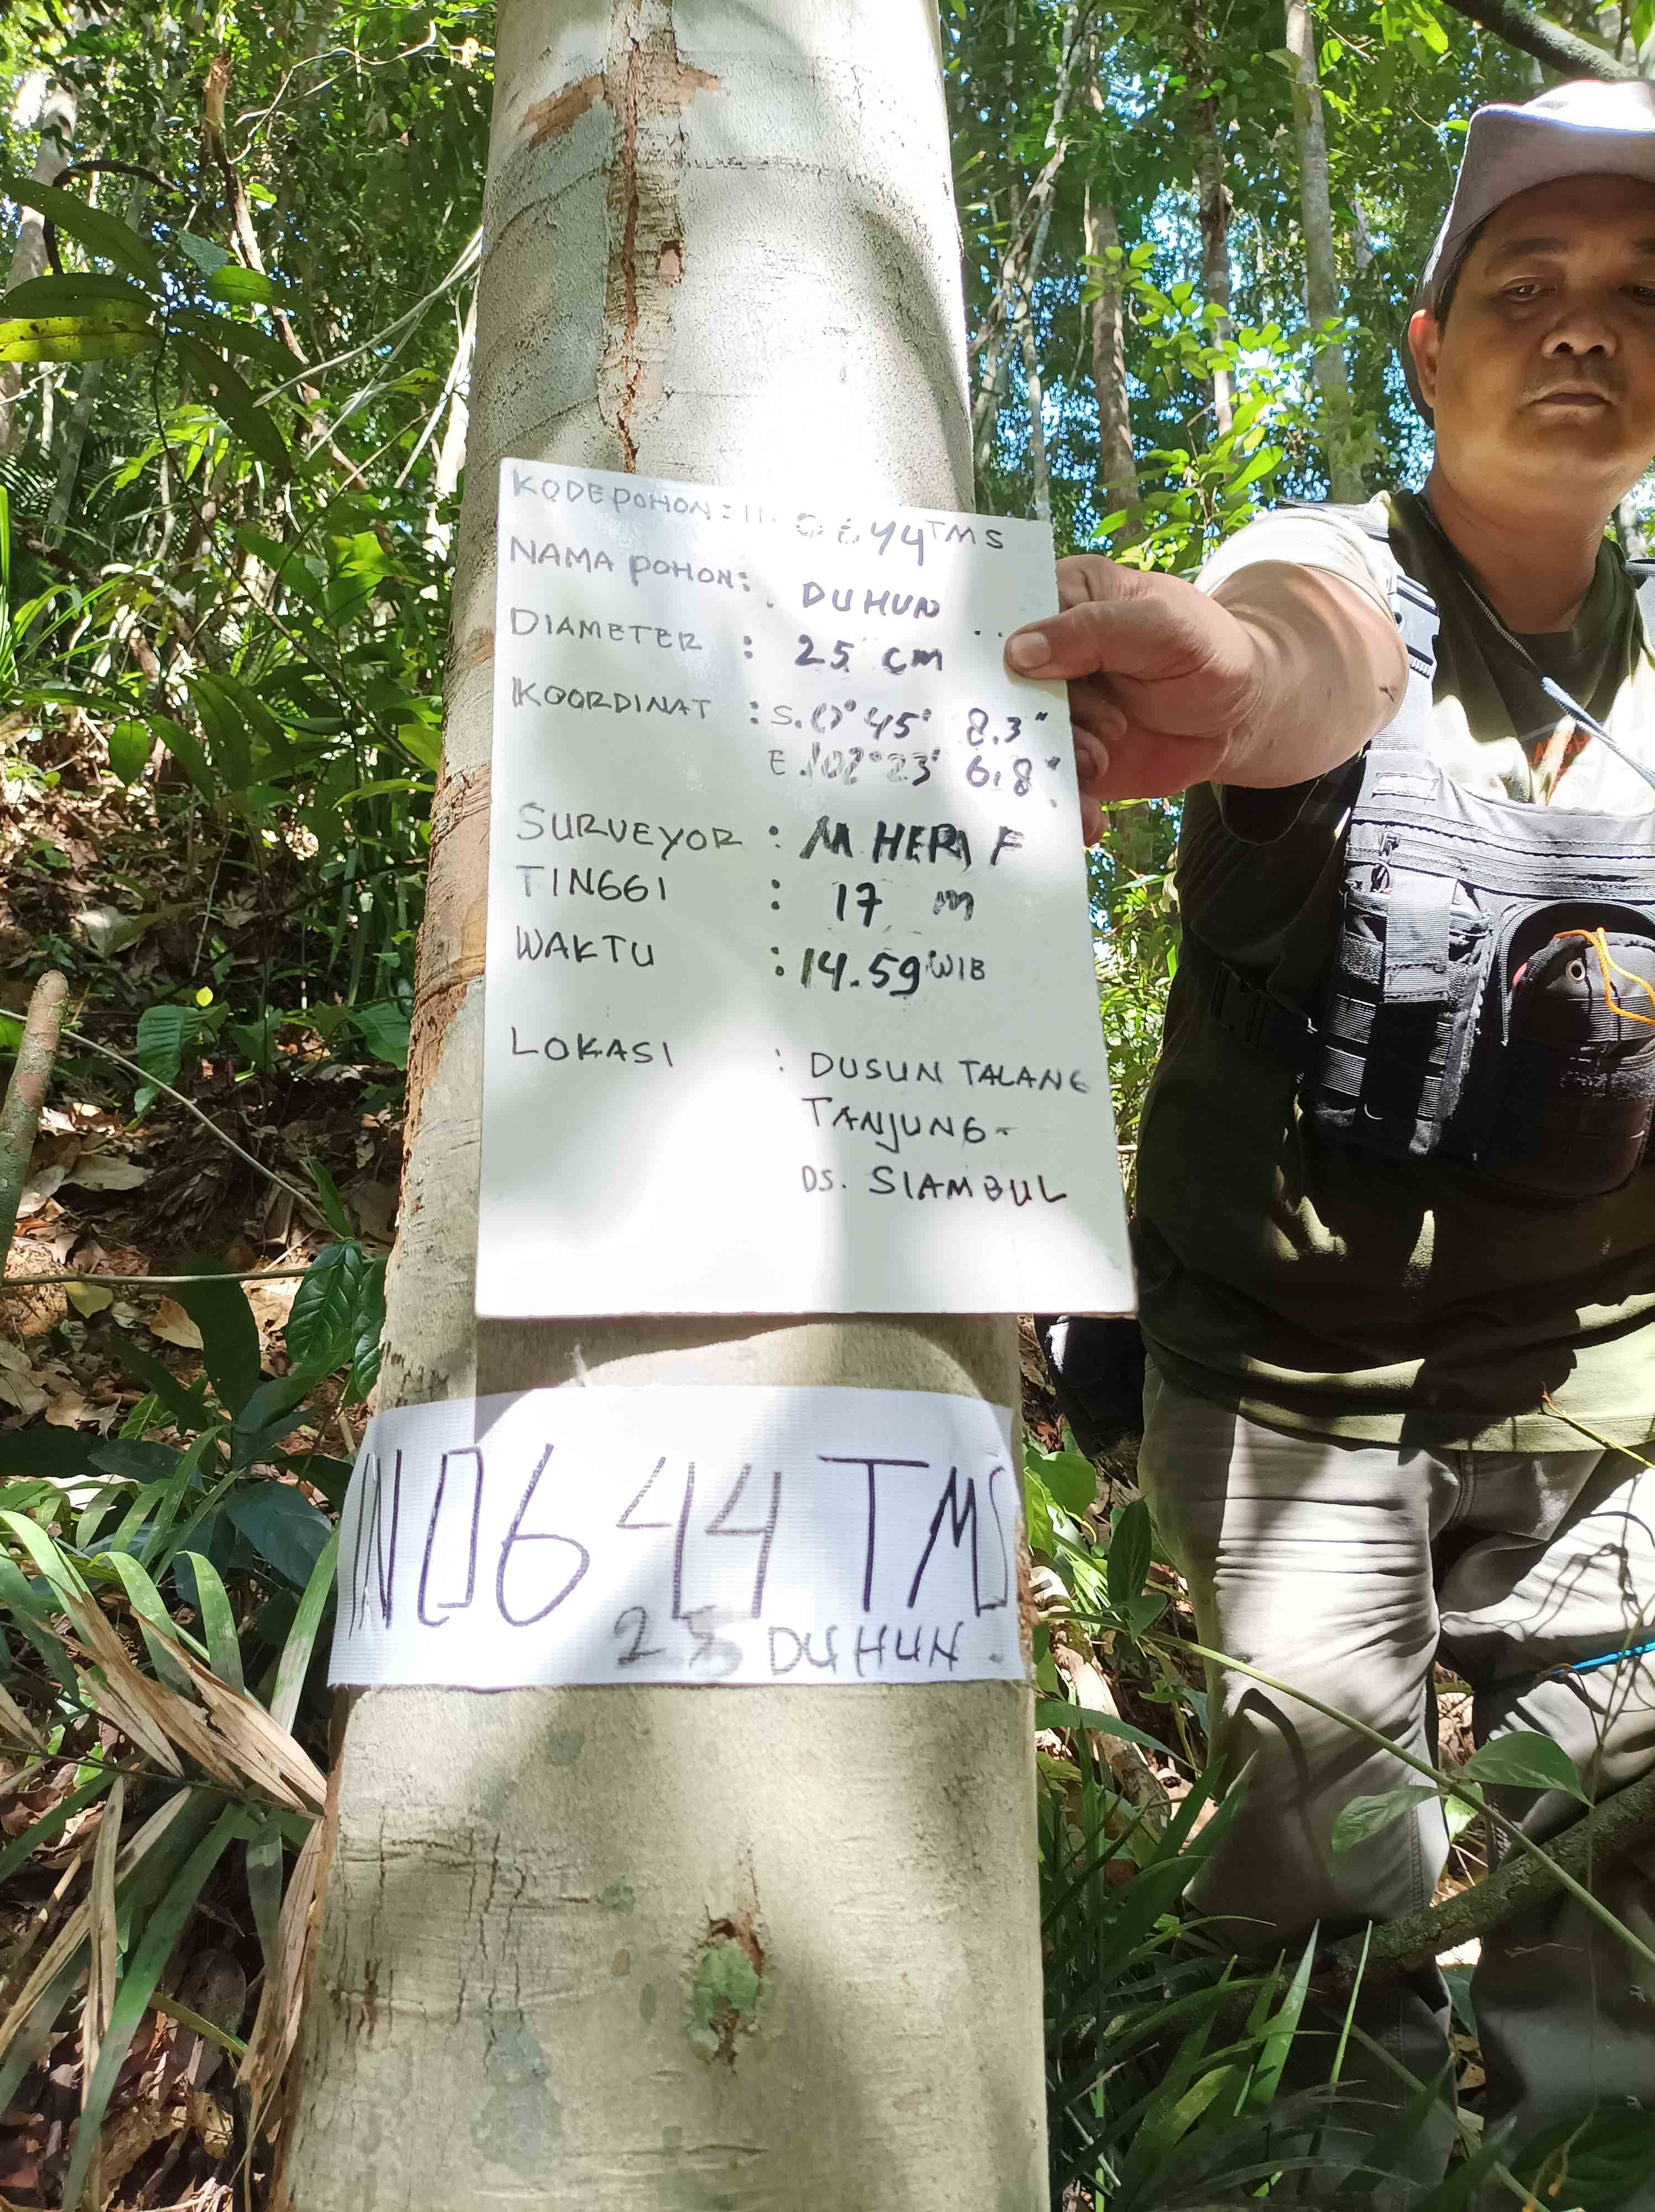 KODE POHON : 0644 TMS
NAMA POHON : DUHUN
DIAMETER : 25 cm
KOORDINAT : S. 0° 45' 8.3"
E. 102° 23' 6.8"
SURVEYOR : M HERI F
TINGGI : 17 m
WAKTU : 14.59 WIB
LOKASI : DUSUN TALANG
TANJUNG -
DS. SIAMBUL
IN 0644 TMS
DUHUN